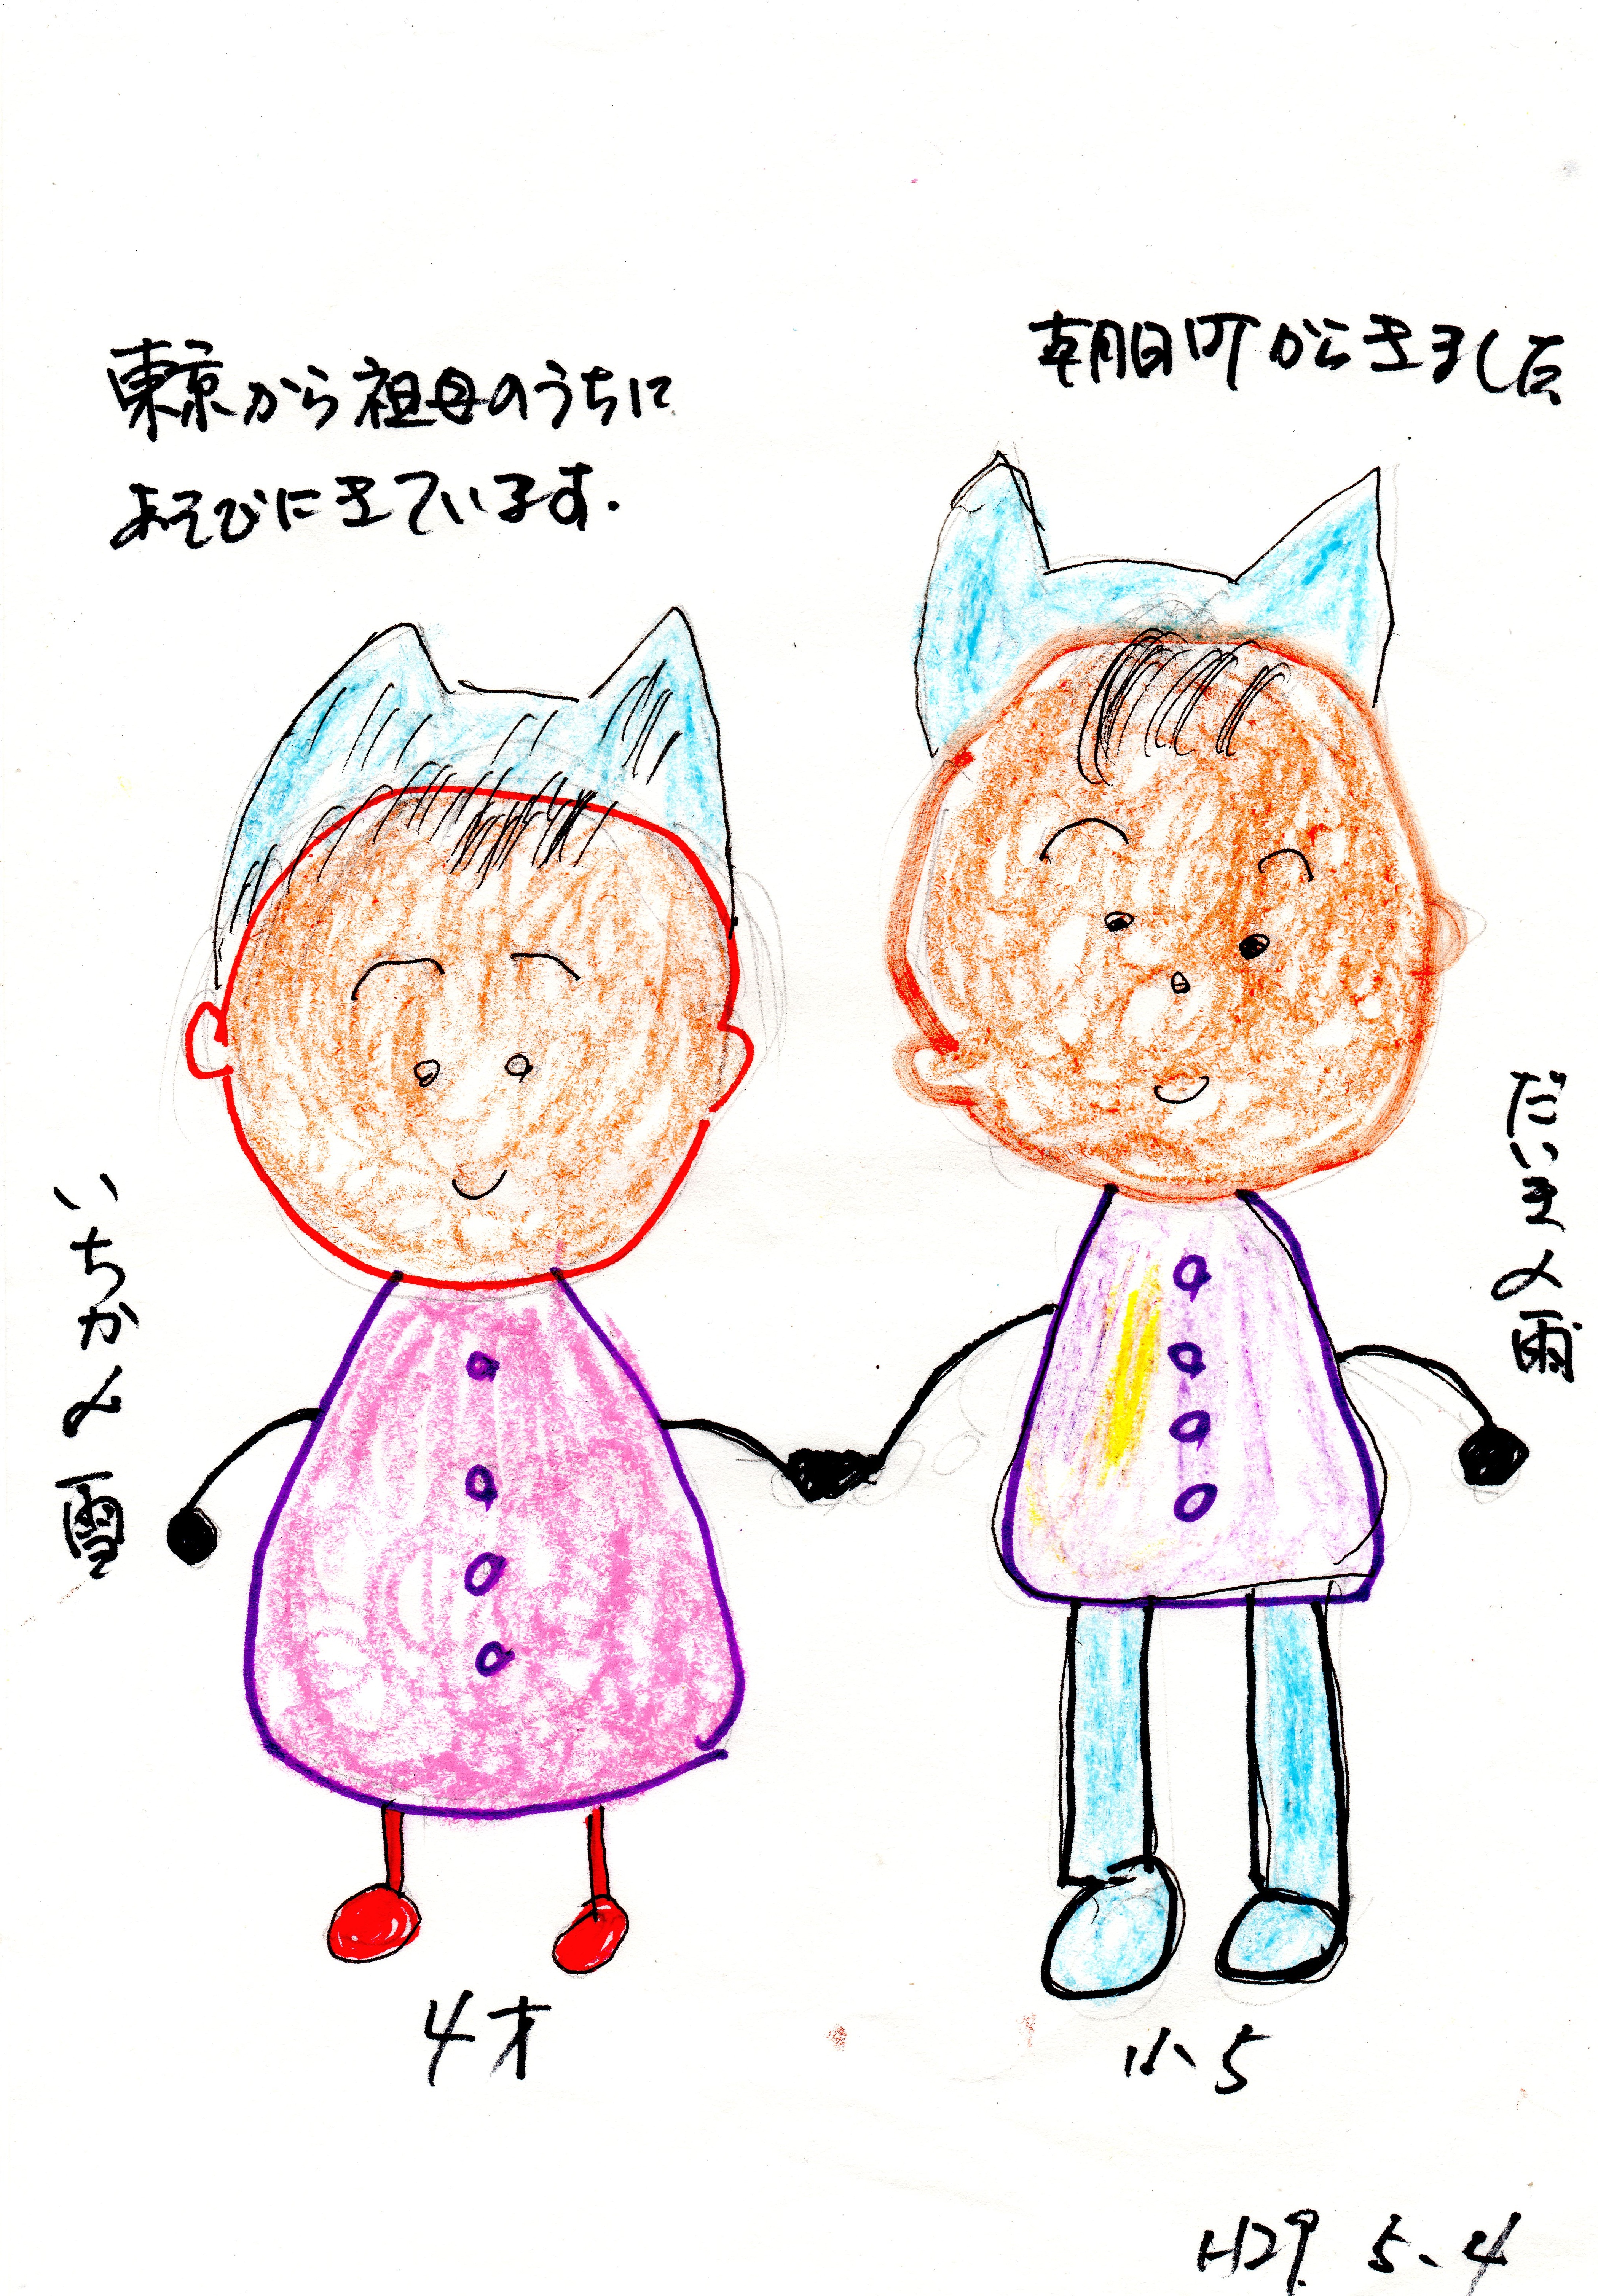 朝日町からきました
東京から祖母のうちに
あそびにきています.
だいき〆雨
いちか〆雪
4才
小5
H29. 5.4